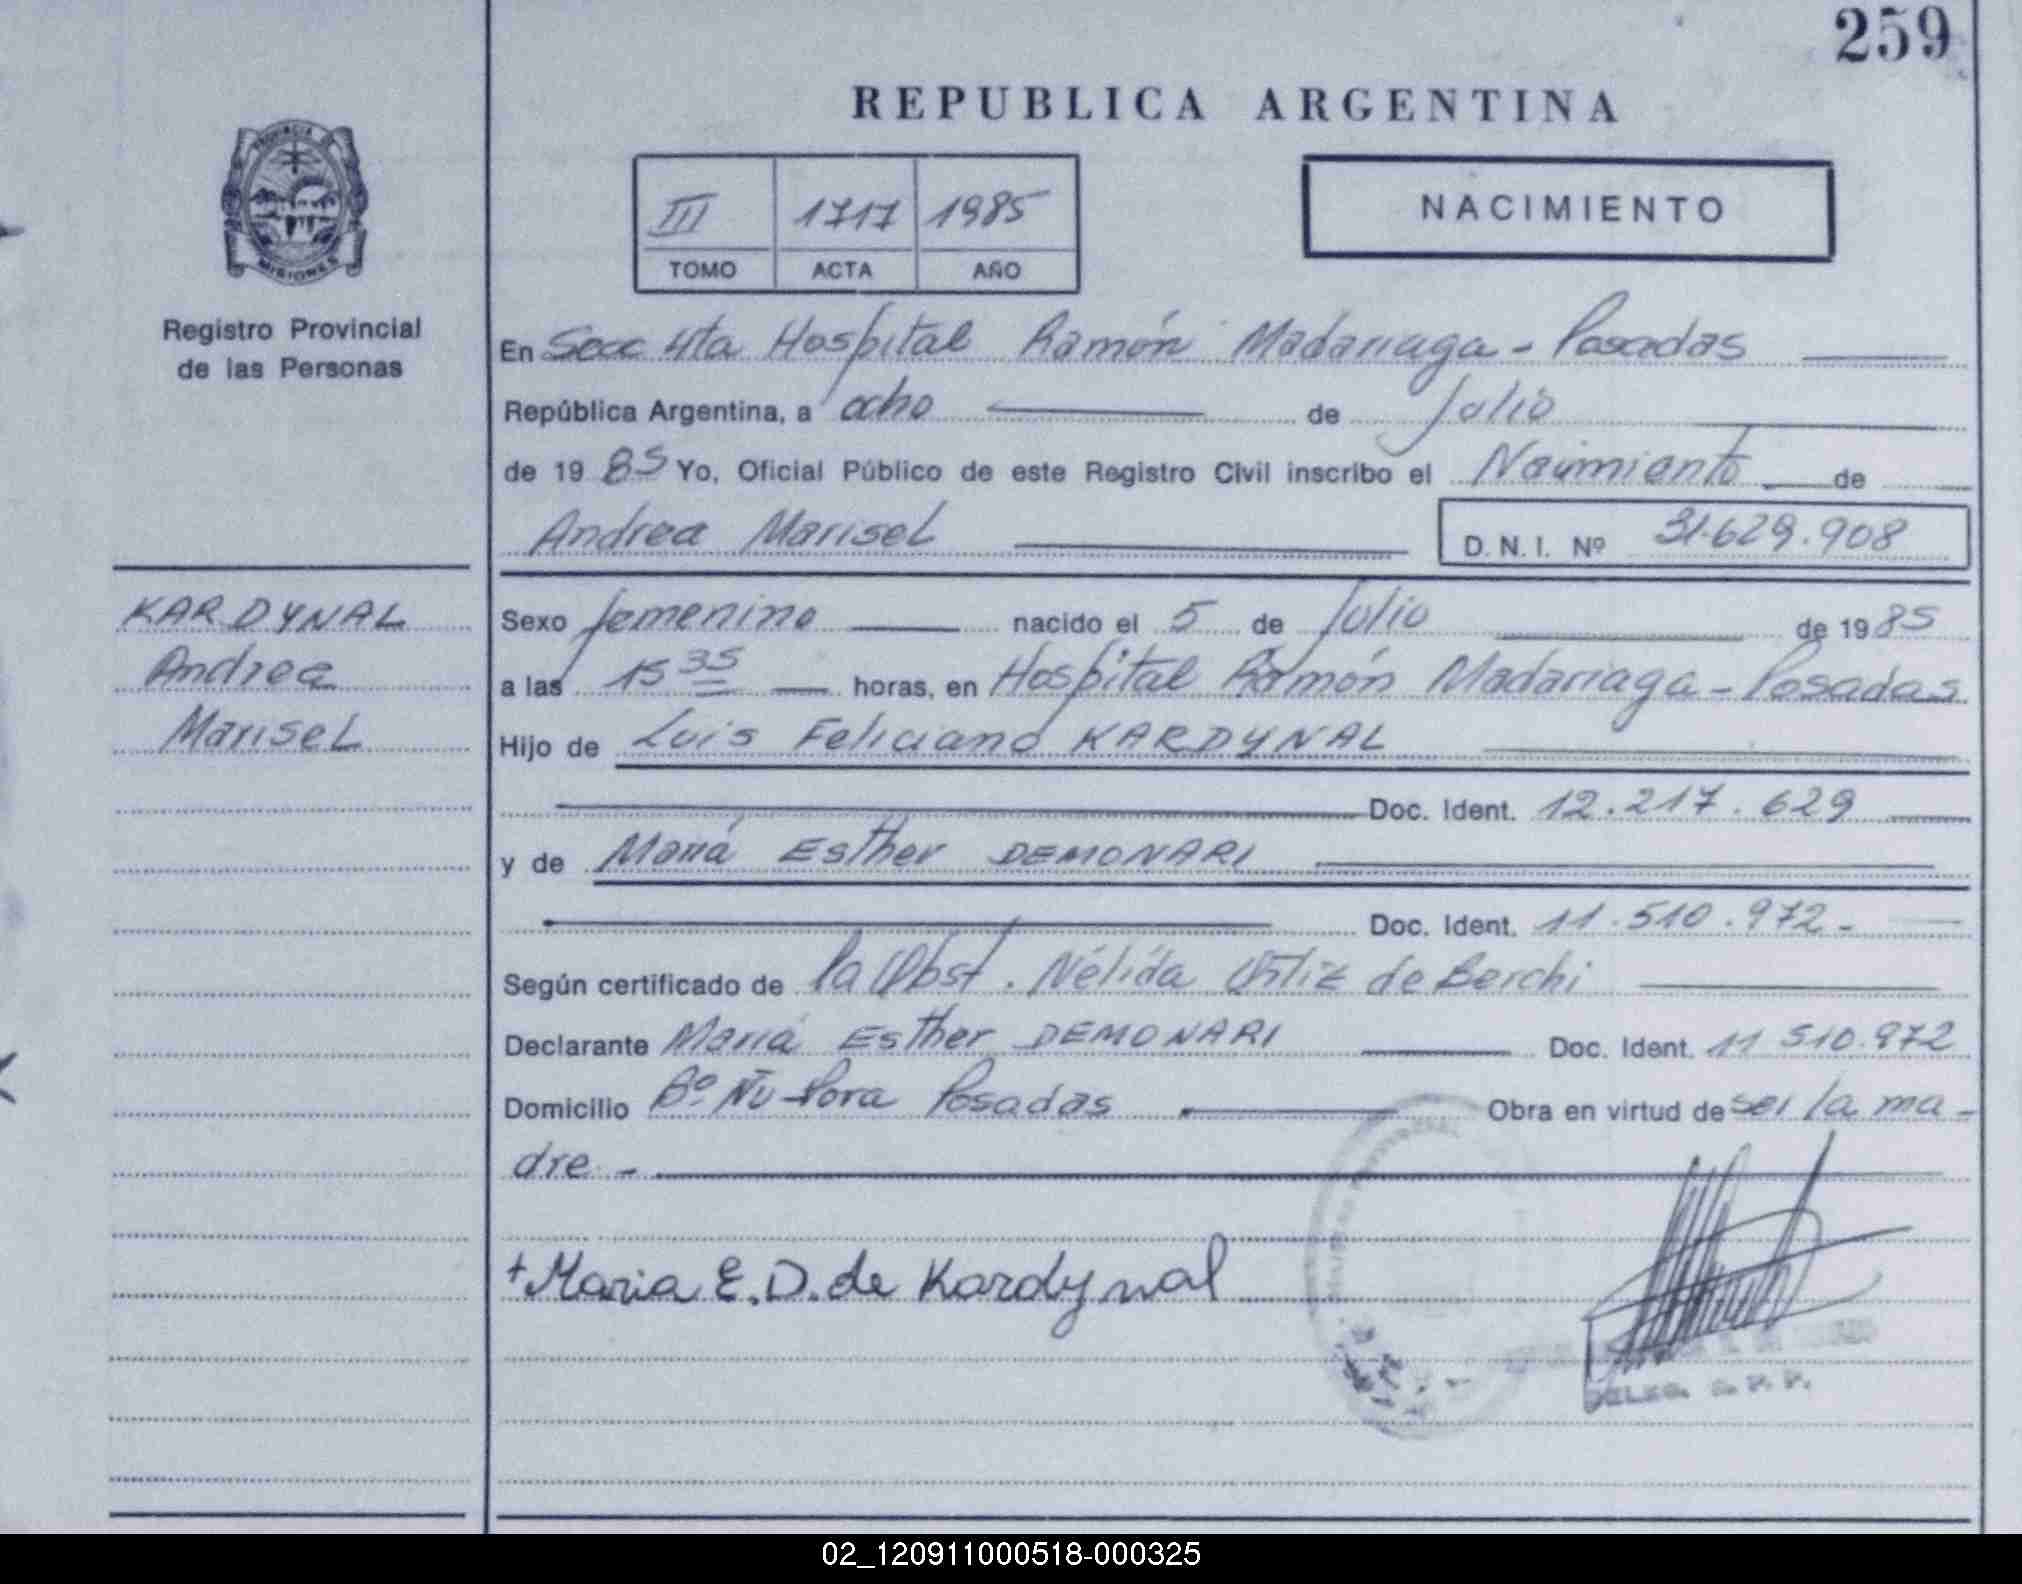 259
REPUBLICA ARGENTINA
PROVINCIA
MISIONES
Registro Provincial
de las Personas
III 1717 1985
TOMO ACTA AÑO
NACIMIENTO
En Secc 4ta Hospital Ramón Madariaga - Posadas
República Argentina, a ocho de Julio
de 19 85 Yo, Oficial Público de este Registro Civil inscribo el Nacimiento de
Andrea Marisel D. N. I. Nº 31.629.908
KARDYNAL
Andrea
Marisel
Sexo femenino nacido el 5 de Julio de 19 85
a las 15 35 horas, en Hospital Ramón Madariaga - Posadas
Hijo de Luis Feliciano KARDYNAL
Doc. Ident. 12.217.629
y de María Esther DEMONARI
Doc. Ident. 11.510.972-
Según certificado de la Obst. Nélida Ortiz de Berchi
Declarante María Esther DEMONARI Doc. Ident. 11 510.972
Domicilio Bº Ñu Pora Posadas Obra en virtud de ser la ma-
dre -
+Maria E.D. de Kardynal
DELEG. R. P. P.
02_120911000518-000325